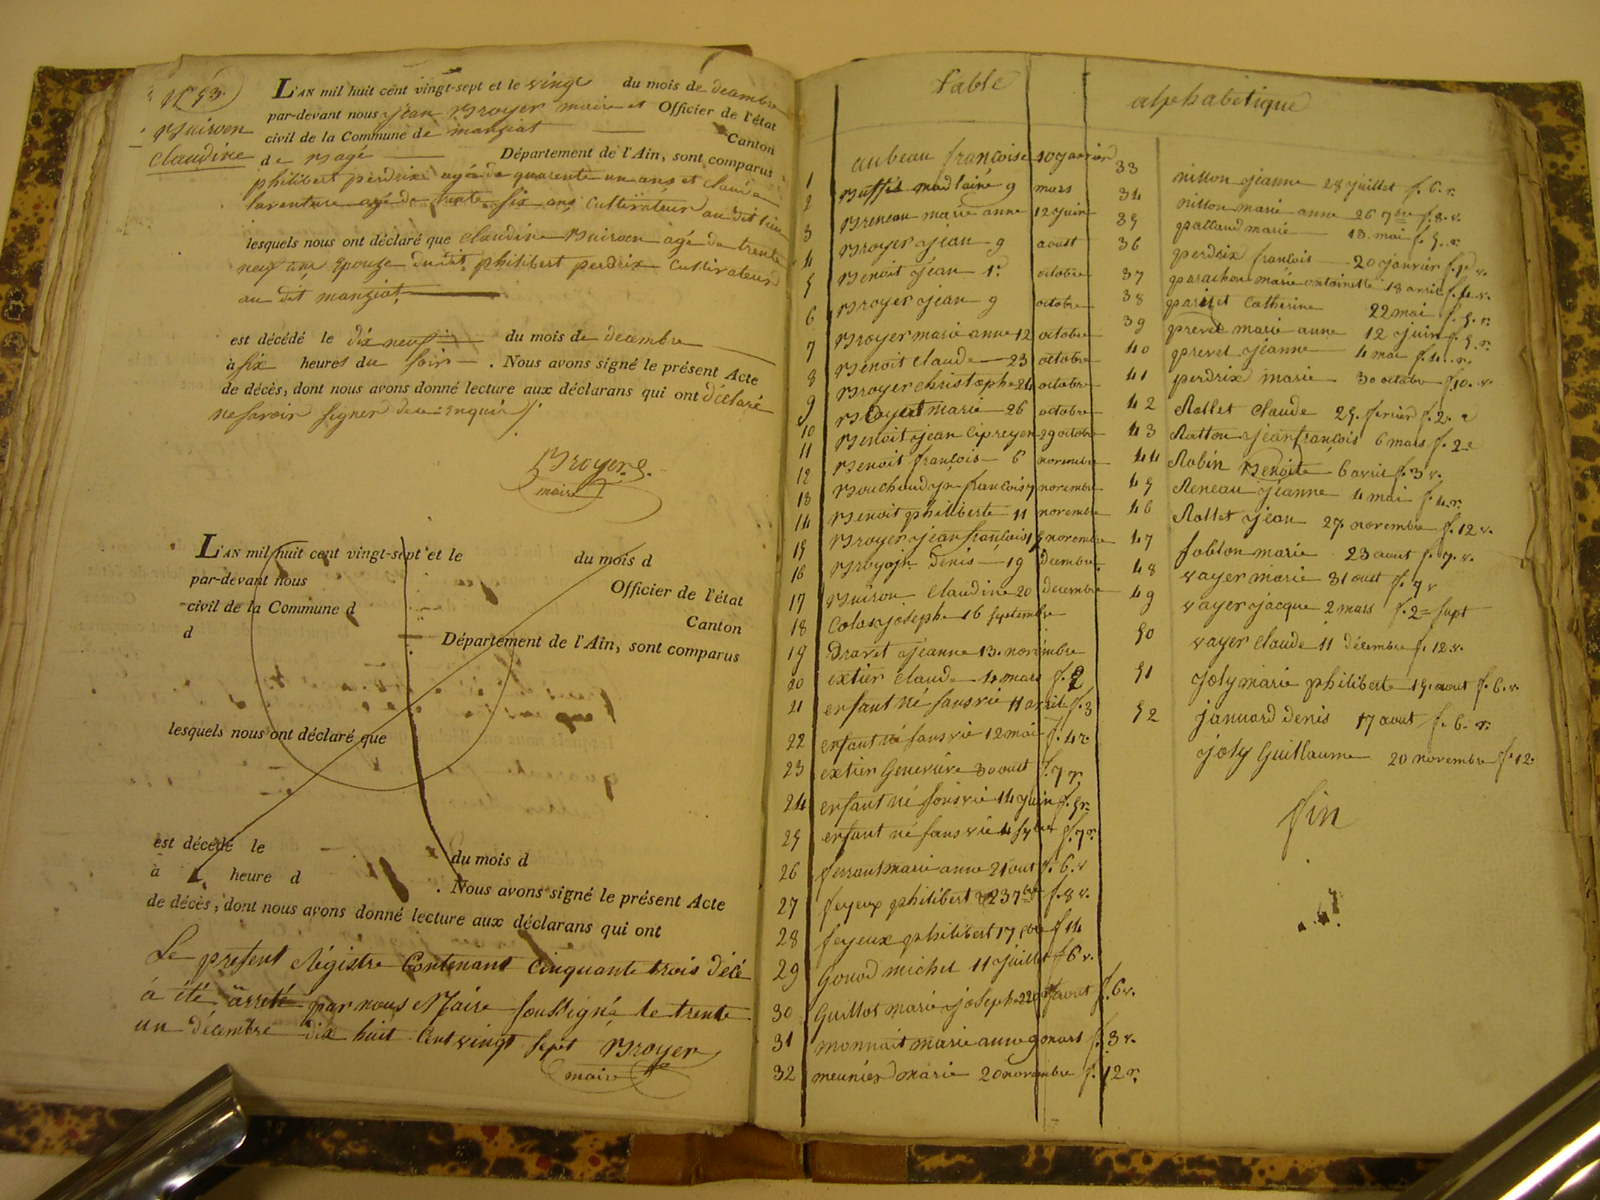 N.º 53.
Buiron
Claudine
L'AN mil huit cent vingt-sept et le vingt du mois de décembre
par-devant nous jean Broyer maire et Officier de l'état
civil de la Commune de manziat Canton
de Bagé Département de l'Ain, sont comparus
philibert perdrix agé de quarente un ans et claude
agé de trente six ans cultivateur au dit lieu
lesquels nous ont déclaré que claudine Buiron agé de trente
neuf ans Epouze dudit philibert perdrix cultivateurs
au dit manziat
est décédé le dix neuf du mois de décembre
à six heures du soir . Nous avons signé le présent Acte
de décès, dont nous avons donné lecture aux déclarans qui ont déclaré
ne savoir signer de ce Enquis
Broyer
maire
L'AN mil huit cent vingt-sept et le du mois d
par-devant nous Officier de l'état
civil de la Commune d Canton
d Département de l'Ain, sont comparus
lesquels nous ont déclaré que
est décédé le du mois d
à heure d . Nous avons signé le présent Acte
de décès, dont nous avons donné lecture aux déclarans qui ont
Le present Régistre Contenant Cinquante trois décè
à été arreté par nous Maire soussigné le trente
un décembre dix huit Cent vingt sept Broyer
maire
table alphabetique
aubeau françoise 10 janvier
1 Buffis madlaine 9 mars
2 Breneau marie anne 12 juin
3 Broyer jean 9 aoust
4 Benoit jean 1.er octobre
5 Broyer jean 9 octobre
6 Broyer marie anne 12 octobre
7 Benoit claude 23 octobre
8 Broyer christophe 24 octobre
9 marie 26 octobre
10 Benoit jean 29 octobre
11 Benoit françois 6 novembre
12 françois 7 novembre
13 Benoit philiberte 11 novembre
14 Broyer jean françois novembre
15 Denis 19 Decembre
16 Buiron Claudine 20 decembre
17 Colas joseph 16 septembre
18 Dravet jeanne 13. novembre
19 extier claude 4 mars f. 2
20 enfant né sans vie 11 avril f. 3
21 enfant né sans vie 12 mai f. 4 r
22 extier Genevieve 30 aout f. 7 r
23 enfant né sans vie 14 juin f. 5 r
24 enfant né sans vie 4 f. 7 r.
25 marie anne 21 aout f. 6. v
26 feyeux philibert 23 7bre f. 8 v.
27 feyeux philibert 17 f 14
28 Gonod michel 11 juillet f 6 v.
29 Guillot marie josephe 22 aout f. 6 v.
30 monnait marie anne 9 mars f. 3 v.
31 meunier marie 20 novembre f. 12 r.
32
33 nillon jeanne 28 juillet f. 6. r.
34 nillon marie anne 26 7bre f. 8. v.
35 palland marie 13. mai f. 5. r.
36 perdrix françois 20 janvier f. 1 v.
37 marie antoinette 18 avril f. 4. v.
38 pariset Catherine 22 mai f. 5. r.
39 prevel marie anne 12 juin f. 5. r.
40 prevel jeanne 4 mai f. 4. r.
41 perdrix marie 30 octobre f. 10. v.
42 Rollet claude 25. fevrier f. 2.
43 Ratton jean françois 6 mars f. 2
44 Robin Benoite 6 avril f. 3 v.
45 Reneau jeanne 4 mai f. 4 r.
46 Rollet jean 27 novembre f. 12 v.
47 marie 23 aout f. 7. v.
48 vayer marie 31 aout f. 7 v
49 vayer jacque 2 mars f. 2
50 vayer Claude 11 décembre f. 12 v.
51 joly marie philiberte 15. aout f. 6. v.
52 januard denis 17 aout f. 6. r.
joly Guillaume 20 novembre f. 12
fin